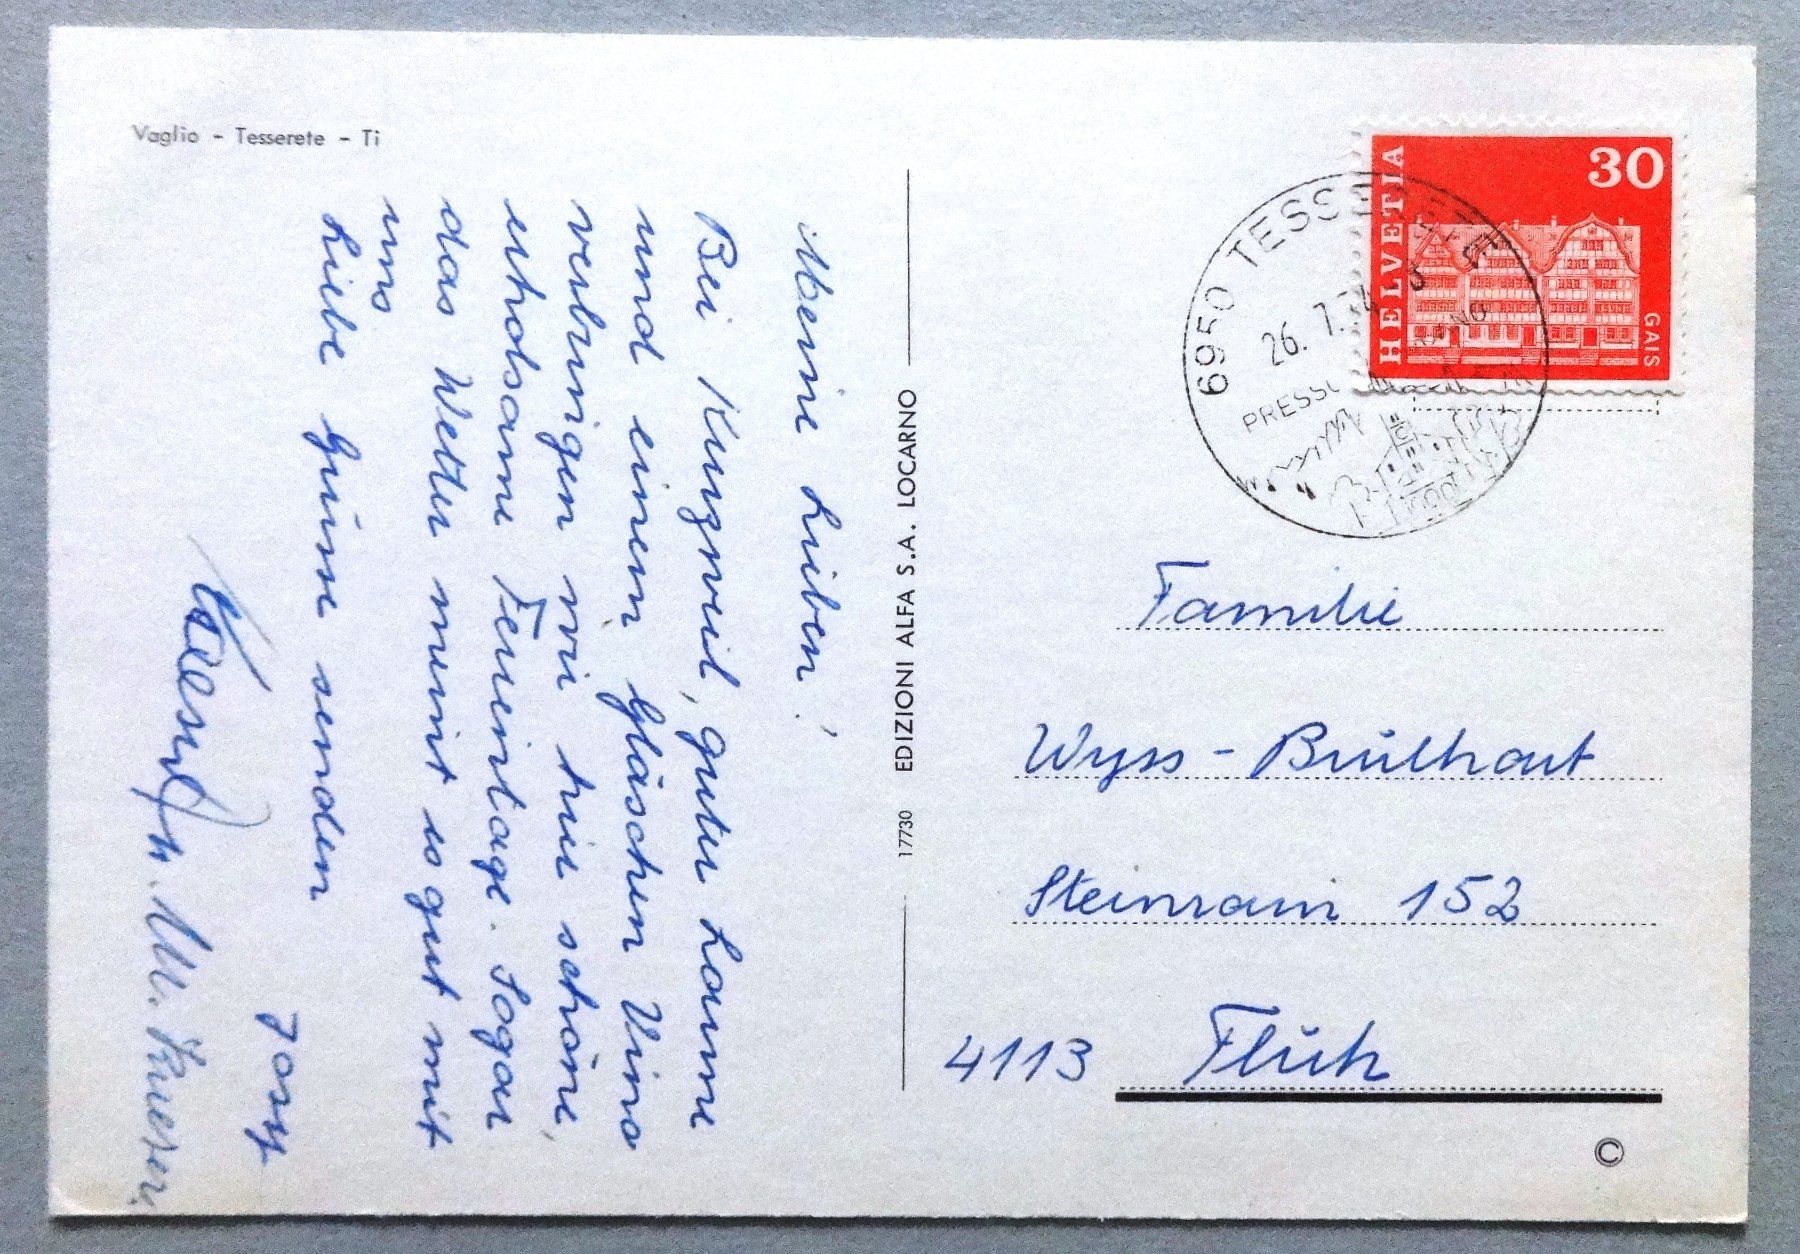 Vaglio - Tesserete - Ti
Meine Lieben!
Bei Kurzweil, guter Laune
und einem Gläschen Vino
verbringen wir hier schöne,
erholsame Ferientage. Sogar
das Wetter meint es gut mit
uns
Liebe Grüsse senden
Josy
M.
17730 EDIZIONI ALFA S.A. LOCARNO
HELVETIA
30
GAIS
6950 TESSERETE
26. 7. 74
PRESSO LUGANO
Familie
Wyss - Brülhart
Steinrain 152
4113 Flüh
©